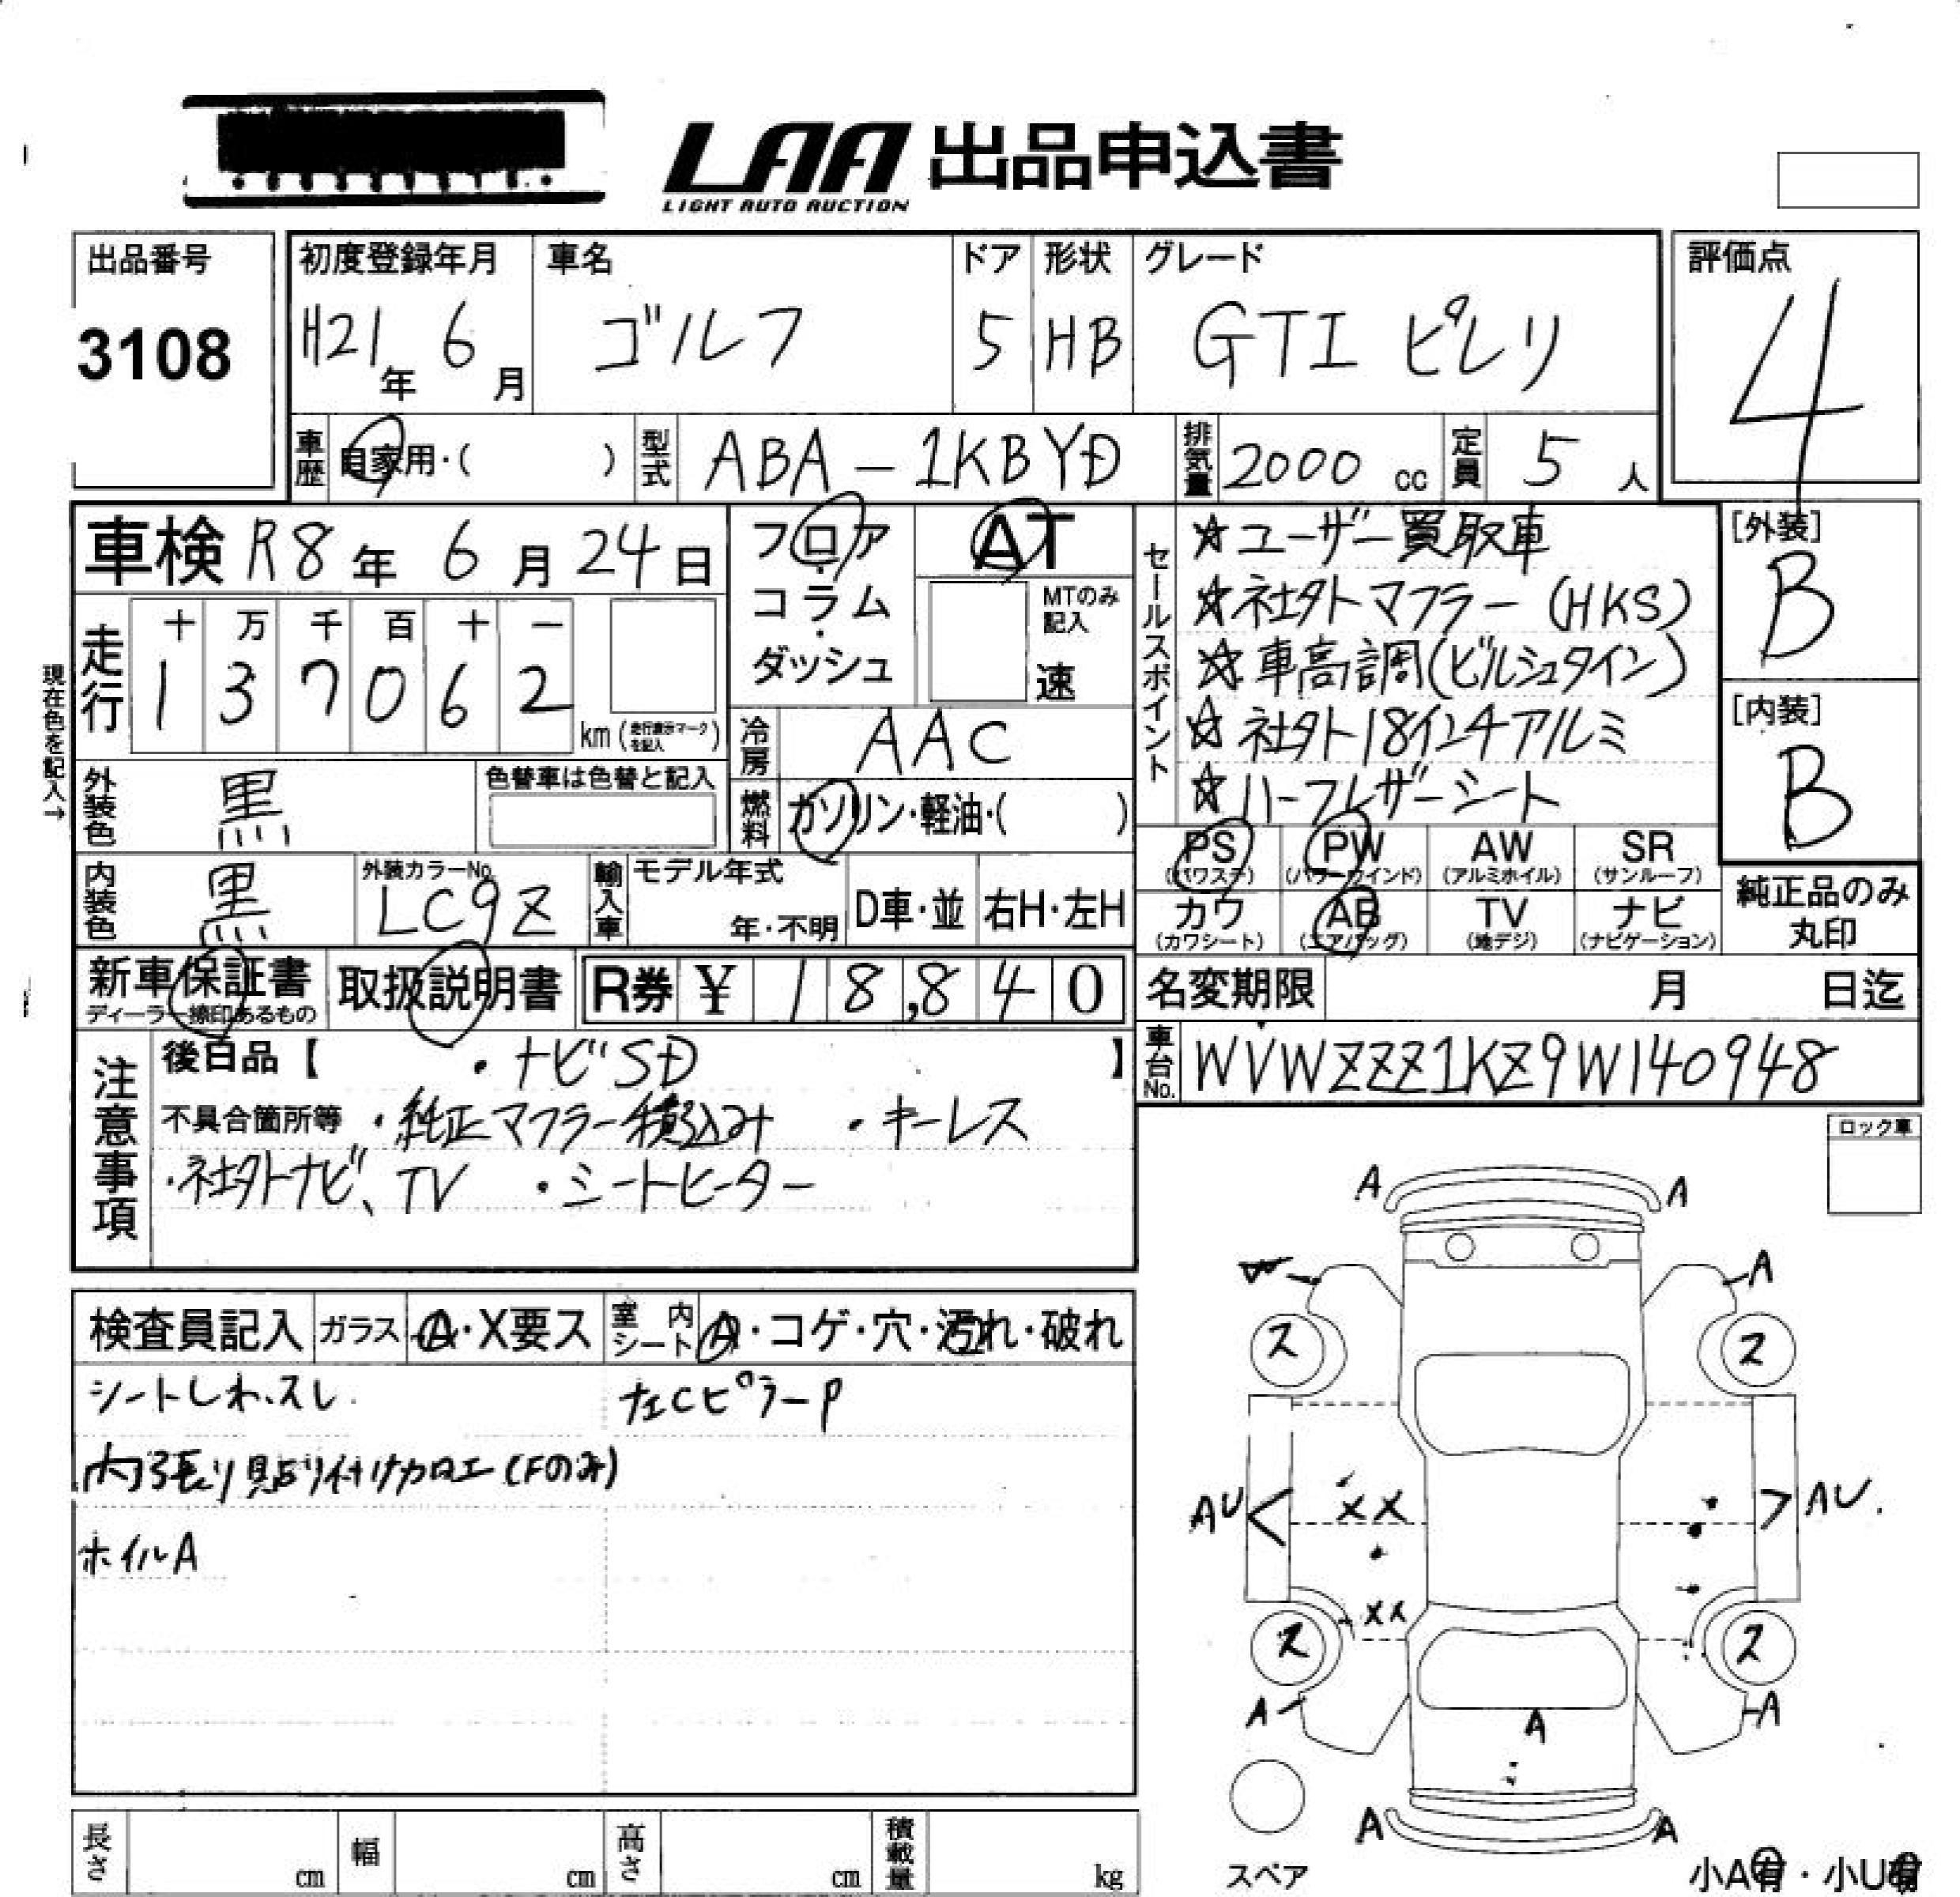 LAA 出品申込書
LIGHT AUTO AUCTION
出品番号
3108
初度登録年月 車名 ドア 形状 グレード
H21年 6月 ゴルフ 5 HB GTI ピレリ
評価点
4
車歴 自家用・( ) 型式 ABA-1KBYD 排気量 2000 cc 定員 5 人
車検 R8年 6月 24日
フロア・コラム・ダッシュ
AT
MTのみ記入
速
走行
十 万 千 百 十 一
1 3 7 0 6 2
km (走行表示マークを記入)
現在色を記入→
冷房 AAC
外装色 黒
色替車は色替と記入
燃料 ガソリン・軽油・( )
内装色 黒
外装カラーNo. LC9Z
輸入車 モデル年式
年・不明 D車・並 右H・左H
セールスポイント
☆ユーザー買取車
☆社外マフラー (HKS)
☆車高調(ビルシュタイン)
☆社外18インチアルミ
☆ハーフレザーシート
[外装]
B
[内装]
B
PS (パワステ) PW (パワーウインド) AW (アルミホイル) SR (サンルーフ)
カワ (カワシート) AB (エアバッグ) TV (地デジ) ナビ (ナビゲーション)
純正品のみ丸印
新車保証書
ディーラー捺印あるもの
取扱説明書 R券 ¥ 18,840
名変期限 月 日迄
車台No. WVWZZZ1KZ9W140948
注意事項
後日品【 ・ナビSD 】
不具合箇所等 ・純正マフラー積込み ・キーレス
・社外ナビ、TV ・シートヒーター
検査員記入 ガラス A・X要ス 室内シート A・コゲ・穴・汚れ・破れ
シートしわ、スレ 左CピラーP
内張り貼り付け加工(Fのみ)
ホイルA
ロック車
A A
W A
ス ス
AU AU
XX
XX
ス ス
A A
A
A A
スペア
小A有・小U有
長さ cm 幅 cm 高さ cm 積載量 kg